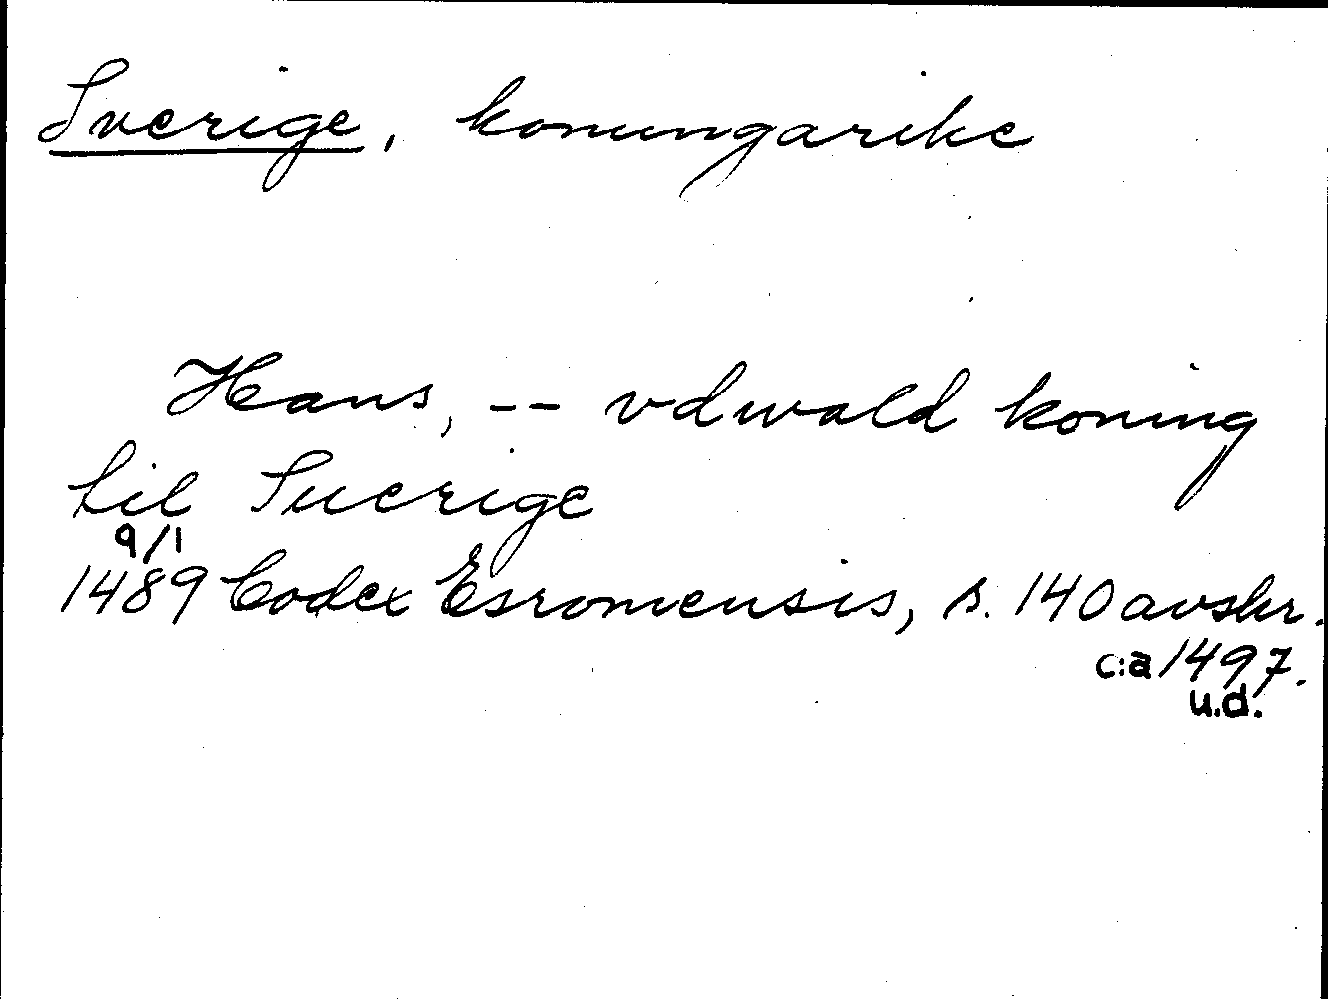 Sverige, konungarike
Hans, -- vdwald koning
til Suerige
9/1
1489 Codex Esromensis, s. 140 avskr.
c:a 1497.
u.d.